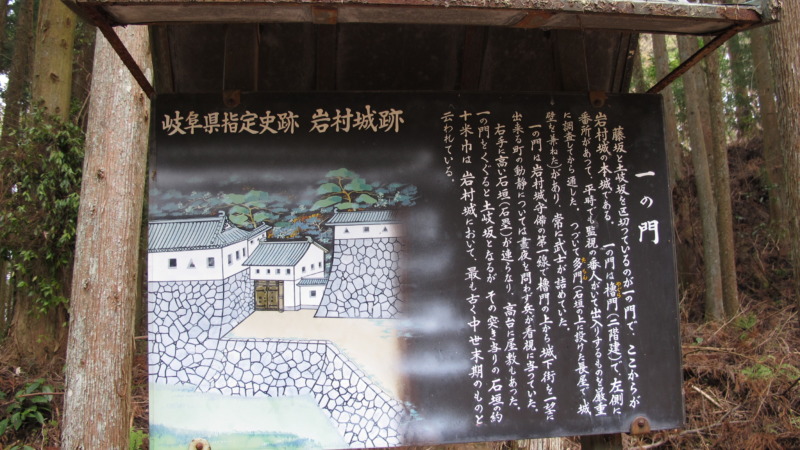 岐阜県指定史跡 岩村城跡
一の門
藤坂と土岐坂を区切っているのが一の門で、ここからが
岩村城の本城である。 一の門は櫓門(二階建)で、左側に
番所があって、平時でも監視の番人がいて出入りするものを厳重
に調査してから通した。 つづいて多門(石垣の上に設けた長屋で城
壁を兼ねた)があり、常に武士が詰めていた。
一の門は岩村城守備の第一線で櫓門の上から城下街を一望に
出来る町の動静については昼夜を問わず兵が看視に当っていた。
右手に高い石垣(石塁)が連らなり、高台に屋敷もあった。
一の門をくぐると土岐坂となるが、その突き当りの石垣の約
十米巾は岩村城において、最も古く中世末期のものと
云われている。